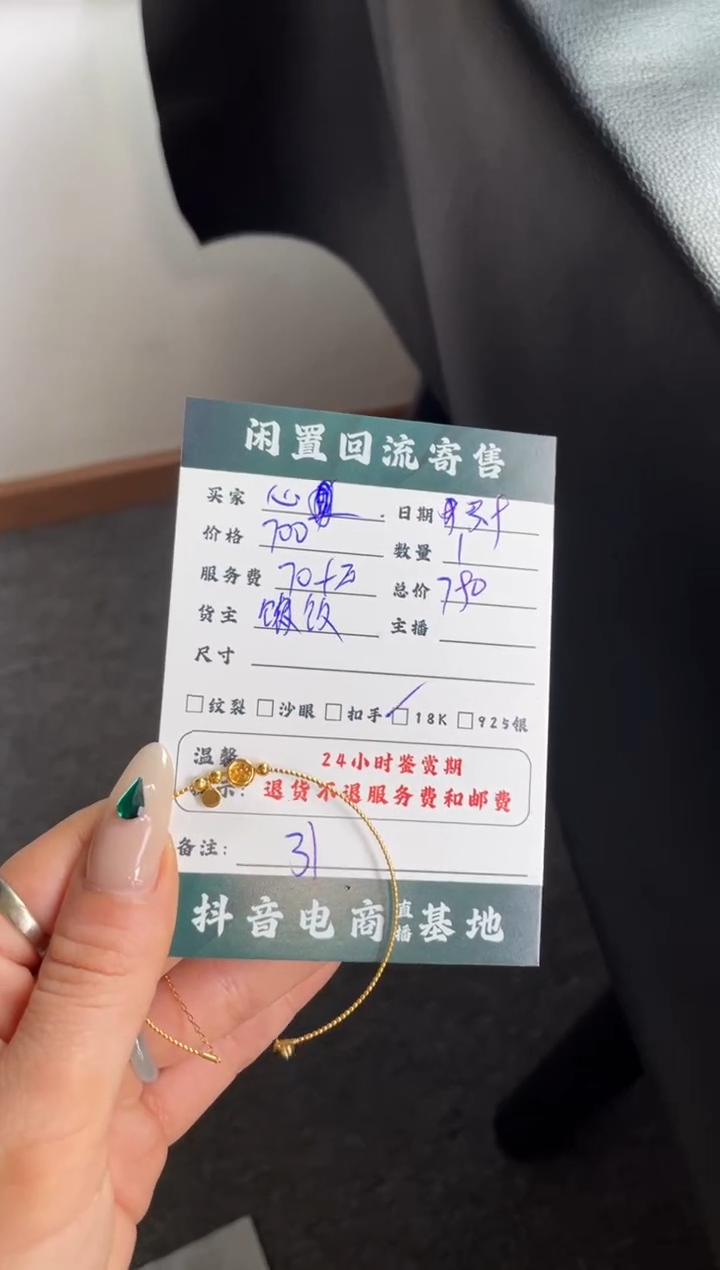 闲置回流寄售
买家 心 日期
价格 700 数量 1
服务费 70+ 总价 790
货主 主播
尺寸
□纹裂 □沙眼 □扣手 □18K □925银
温馨 24小时鉴赏期
示: 退货不退服务费和邮费
备注: 31
抖音电商直播基地